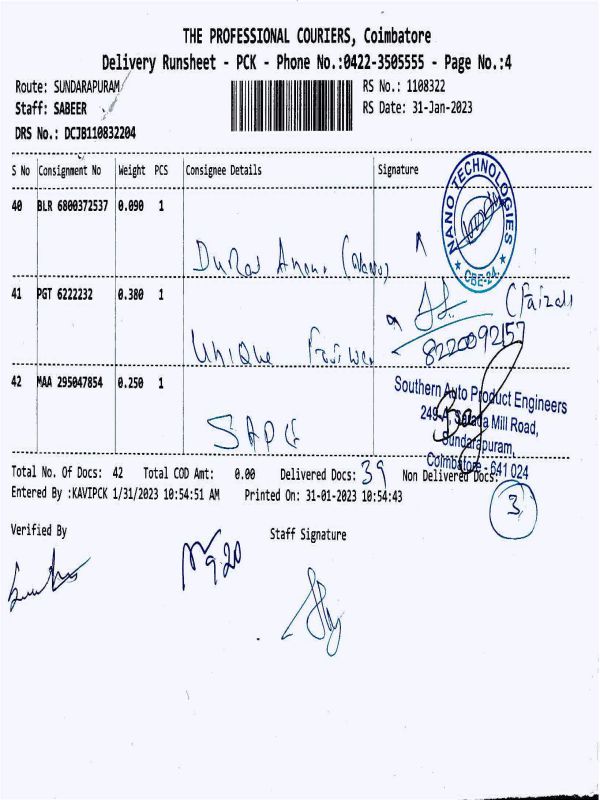 THE PROFESSIONAL COURIERS, Coimbatore
Delivery Runsheet - PCK - Phone No.:0422-3505555 - Page No.:4
Route: SUNDARAPURAM RS No.: 1108322
Staff: SABEER RS Date: 31-Jan-2023
DRS No.: DCJB110832204
S No Consignment No Weight PCS Consignee Details Signature
40 BLR 6800372537 0.090 1
NANO TECHNOLOGIES
★ CBE-24 ★
41 PGT 6222232 0.380 1 Unique (Faizal)
8220092157
42 MAA 295047854 0.250 1 SAPE
Southern Auto Product Engineers
249-A, Sarada Mill Road,
Sundarapuram,
Coimbatore - 641 024
Total No. Of Docs: 42 Total COD Amt: 0.00 Delivered Docs: 39 Non Delivered Docs: 3
Entered By :KAVIPCK 1/31/2023 10:54:51 AM Printed On: 31-01-2023 10:54:43
Verified By Staff Signature
9.20